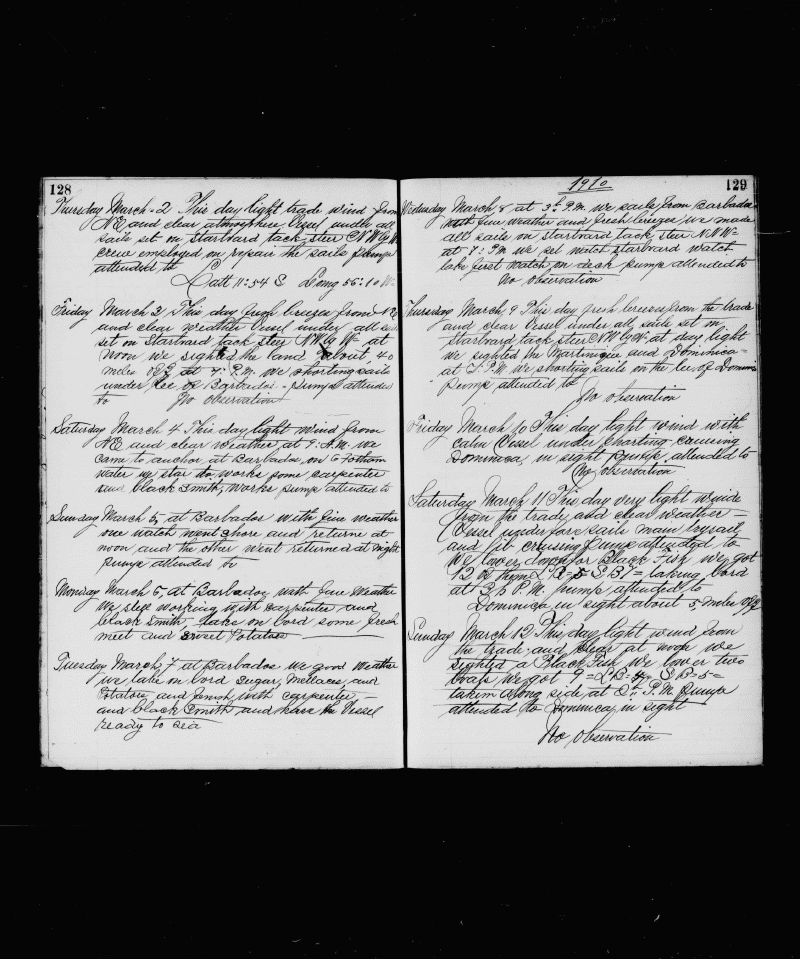 128
Thursday March 2 This day light trade wind from
NE and clear atmosphere Vessel under all
sails set on starboard tack, steer NW by W
crew employed on repair the sails pump
attended to
Latt 11:54 S Long 56:10 W
Friday March 3 This day fresh breezes from NE
and clear weather Vessel under all sails
set on starboard tack steer NW by W at
noon we sighted the land about 40
miles off at 7: P.M. we shorting sails
under lee of Barbados - pump attended
to No observation
Saturday March 4 This day light wind from
NE and clear weather at 9: A.M. we
came to anchor at Barbados, on 6 Fothom
water we star to works some carpenter
and black Smith, works pump attended to
Sunday March 5, at Barbados with fine weather
one watch went shore and returne at
noon and the other went returned at night
pump attended to
Monday March 6, at Barbados with fine weather
We still working with carpenter and
black Smith - take on bord some fresh
meet and sweet Potatoes
Tuesday March 7 at Barbados we good weather
we take on bord Sugar, Mellaces and
Potatoes and finish with carpenter
and black Smith and have the Vessel
ready to sea
1910
129
Wednesday March 8 at 3: P.M. we sails from Barbados
with fine weather and fresh breezes, we made
all sails on starboard tack, steer NNW
at 7: P.M. we set watch starboard watch
take first watch on deck pump attended to
No observation
Thursday March 9 This day fresh breezes from the trade
and clear Vessel under all, sails set on
starboard tack steer NW by W at day light
we sighted the Martinique and Dominica
at 7 P.M. We shorting sails on the lee of Dominica
Pump attended to
No observation
Friday March 10 This day light wind with
calm Vessel under shorting cruising
Dominica, in sight pump attended to
No observation
Saturday March 11 This day very light winds
from the trade and clear weather
Vessel under fore sails main trysail
and jib cruising pump attended to
We lower down for Black Fish we got
12 of them L B=5 S B 7= taking bord
at 3,5 P.M. pump attended to
Dominica in sight about 5, miles off
Sunday March 12 This day light wind from
the trade and clear at noon we
sighted a Black Fish we lower two
boats we got 9=L B=4 S B=5=
taken along side at 2: P.M pump
attended to Dominica, in sight
No observation